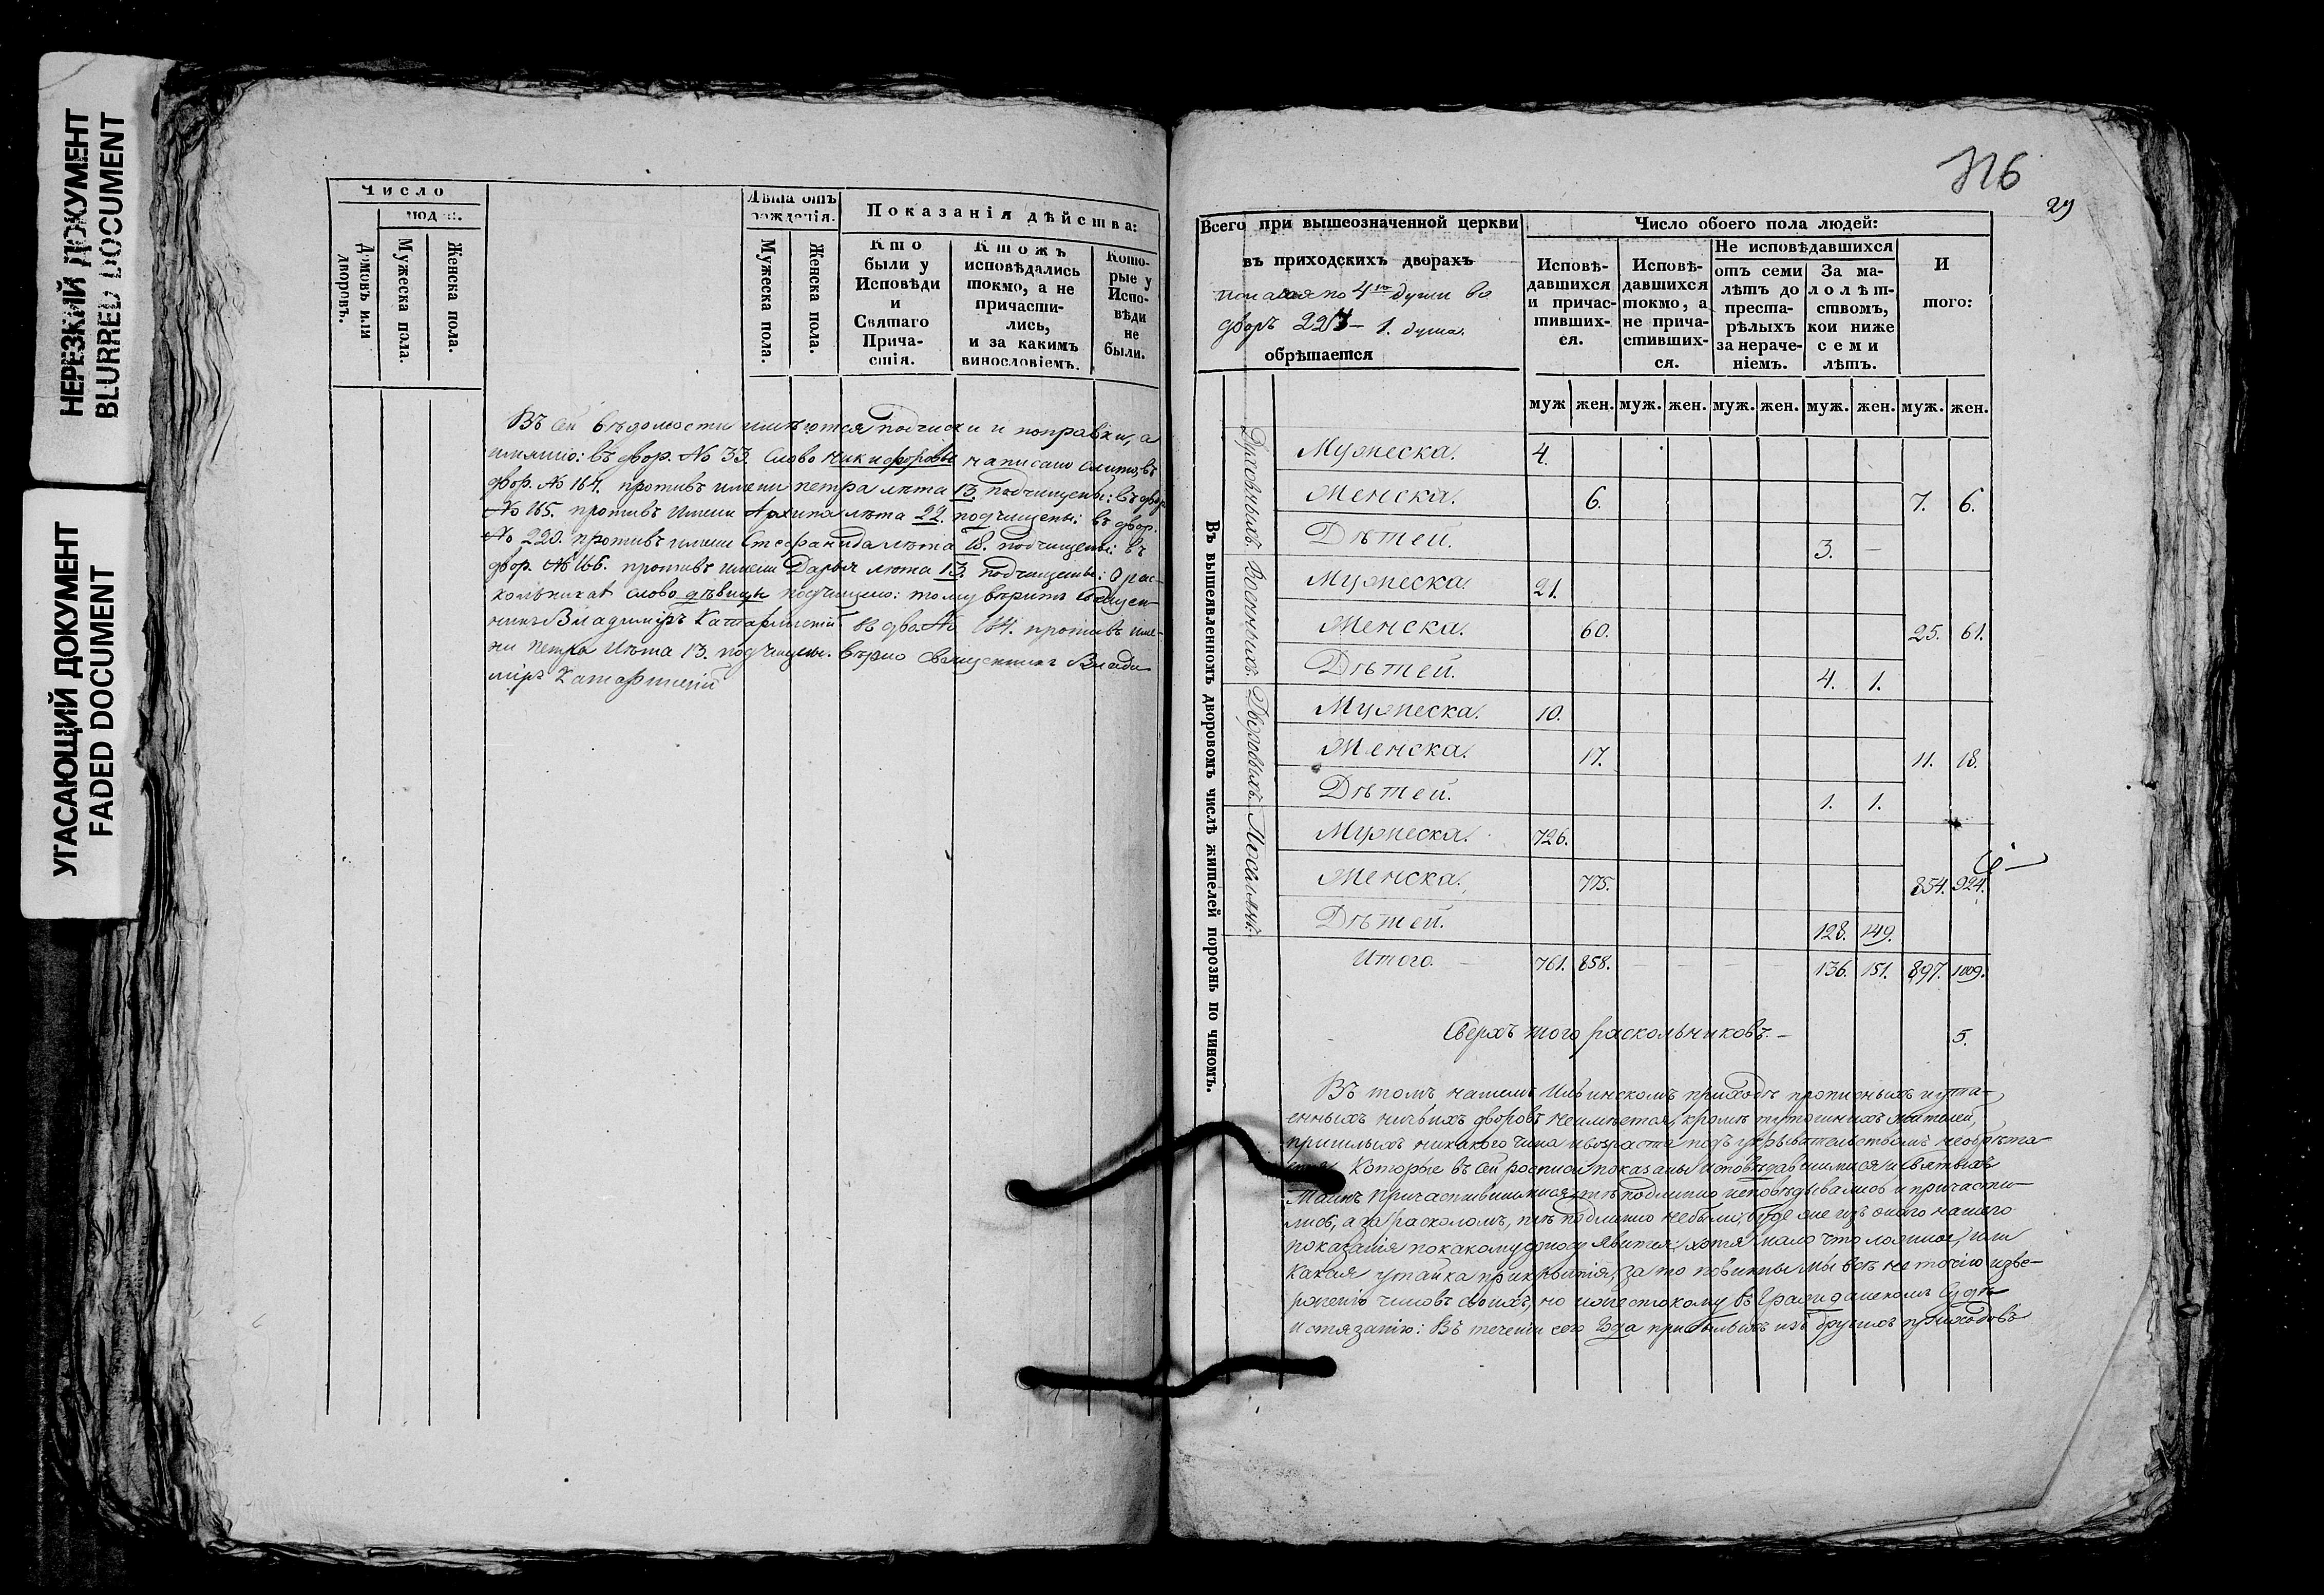 НЕРЕЗКИЙ ДОКУМЕНТ
BLURRED DOCUMENT
УГАСАЮЩИЙ ДОКУМЕНТ
FADED DOCUMENT
Число
Домовъ или дворовъ.
Мужеска пола.
Женска пола.
Лѣта отъ рожденія.
Мужеска пола.
Женска пола.
Показанія дѣйства:
Кто были у Исповѣди и Святаго Причастія.
Ктожъ исповѣдались токмо, а не причастились, и за какимъ винословіемъ.
Которые у Исповѣди не были.
Въ сей вѣдомости имѣются подчистки и поправки, а
имянно: въ двор. № 33. слово никифоровы написано слитно, въ
двор. № 164. противъ имени петра лѣта 13. подчищены: въ двор.
№ 165. противъ имени Архипа лѣта 22. подчищены: въ двор.
№ 220. противъ имени Стефанида лѣта 18. подчищены: въ
двор. № 166. противъ имени Дарья лѣта 13. подчищены: О рас-
кольникахъ слово дѣвицы подчищено: тому вѣритъ Священ-
никъ Владимиръ № 164. противъ име-
ни Петра лѣта 13. подчищены. вѣрно Священникъ Влади-
міръ
29
Всего при вышеозначенной церкви
въ приходскихъ дворахъ
по 4 души во
дворѣ 1. душа.
обрѣтается
Число обоего пола людей:
Исповѣдавшихся и причастившихся.
Исповѣдавшихся токмо, а не причастившихся.
Не исповѣдавшихся
отъ семи лѣтъ до престарѣлыхъ за нерачѣніемъ.
За малолѣтствомъ, кои ниже семи лѣтъ.
Итого:
муж жен. муж. жен. муж. жен. муж. жен. муж. жен.
Въ вышеявленномъ дворовомъ числѣ жителей порознь по чиномъ.
Духовныхъ.
Мужеска. 4.
Женска. 6. 7. 6.
Дѣтей. 3. —
Военныхъ.
Мужеска. 21.
Женска. 60. 25. 61.
Дѣтей. 4. 1.
Дворовыхъ.
Мужеска. 10.
Женска. 17. 11. 18.
Дѣтей. 1. 1.
Мужеска. 726.
Женска. 775. 854. 924.
Дѣтей. 128. 149.
Итого. — 761. 858. — — — — 136. 151. 897. 1009.
Сверхъ того раскольниковъ. — 5.
Въ томъ нашемъ Ильинскомъ приходѣ прописныхъ и ута-
енныхъ ничьихъ дворовъ неимѣется, кромѣ тутошнихъ жителей,
пришлыхъ никакого чина и возраста подъ укрывательствомъ необрѣта-
ется Которые въ сей росписи показаны исповѣдавшимися и Святыхъ
Таинъ Причастившимися, тѣ подлинно исповѣдывались и причасти-
лись, а за расколомъ, тѣ подлинно небыли; буде же изъ онаго нашего
показанія покакому доносу явится, хотя мало что ложное, или
какая утайка прикрытія, за то повинны мы всѣ не точію извер-
женію чиновъ своихъ, но и жестокому въ Гражданскомъ Судѣ
истязанію: Въ теченіи сего Года прибылыхъ изъ другихъ приходовъ